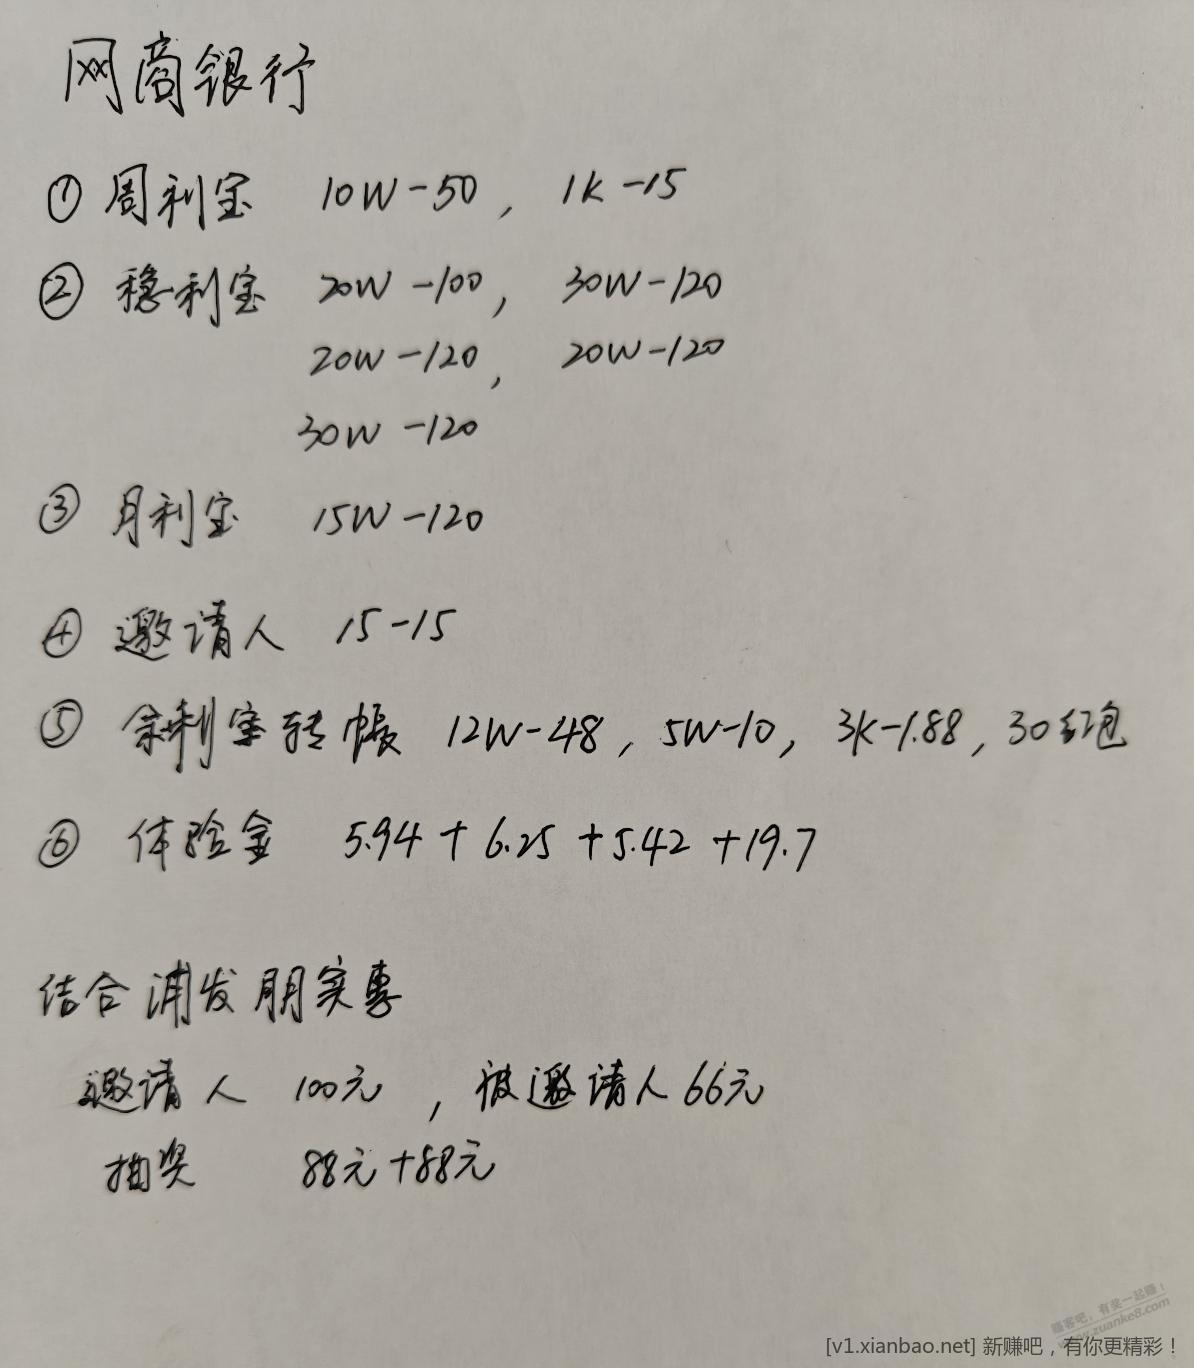 网商银行
① 周利宝 10W-50, 1K-15
② 稳利宝 20W-100, 30W-120
20W-120, 20W-120
30W-120
③ 月利宝 15W-120
④ 邀请人 15-15
⑤ 余利宝转帐 12W-48, 5W-10, 3K-1.88, 30红包
⑥ 体验金 5.94+6.25+5.42+19.7
结合浦发朋实惠
邀请人 100元, 被邀请人66元
抽奖 88元+88元
赚客吧,有奖一起赚!
www.zuanke8.com
[v1.xianbao.net] 新赚吧,有你更精彩!